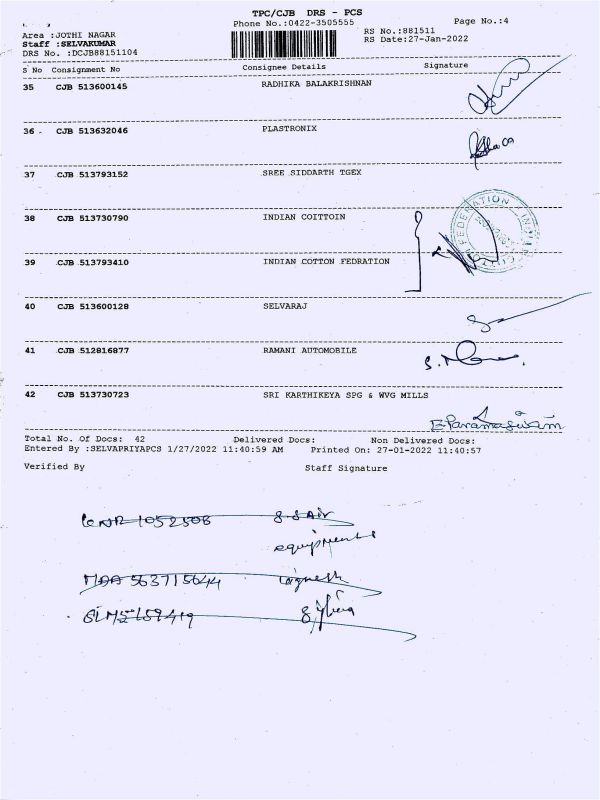 TPC/CJB DRS - PCS
Phone No.:0422-3505555
Page No.:4
Area :JOTHI NAGAR
Staff :SELVAKUMAR
DRS No. :DCJB88151104
RS No.:881511
RS Date:27-Jan-2022
S No Consignment No Consignee Details Signature
35 CJB 513600145 RADHIKA BALAKRISHNAN
36 CJB 513632046 PLASTRONIX
37 CJB 513793152 SREE SIDDARTH TGEX
38 CJB 513730790 INDIAN COITTOIN
FEDERATION
39 CJB 513793410 INDIAN COTTON FEDRATION
40 CJB 513600128 SELVARAJ
41 CJB 512816877 RAMANI AUTOMOBILE
42 CJB 513730723 SRI KARTHIKEYA SPG & WVG MILLS
E.Paramasivam
Total No. Of Docs: 42 Delivered Docs: Non Delivered Docs:
Entered By :SELVAPRIYAPCS 1/27/2022 11:40:59 AM Printed On: 27-01-2022 11:40:57
Verified By Staff Signature
1052508
equipments
MAA 563715644